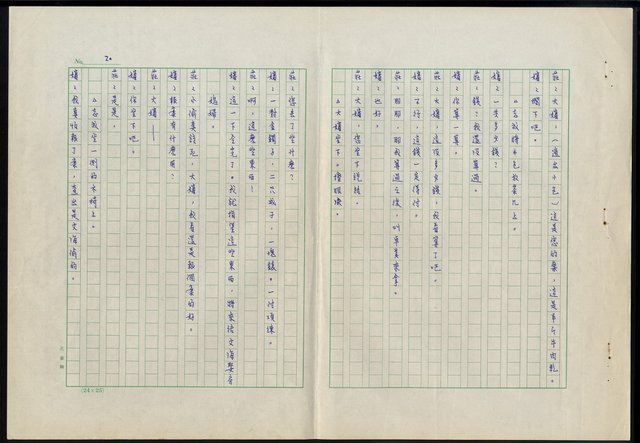 莊：大嬸，（遞出小包）這是您的藥，這是半斤牛肉乾。
嬸：擱下吧。
△志成將小包放茶几上。
嬸：一共多少錢？
莊：錢？我還沒算過。
嬸：你算一算。
莊：大嬸，這沒多少錢，我看算了吧。
嬸：不行，這錢一定得付。
莊：那那，那我算過之後，叫阜美來拿。
嬸：也好。
莊：大嬸，您坐下說話。
△大嬸坐下。擦眼淚。
No. 20
莊：您丟了些什麼？
嬸：一對金鐲子，二只戒子，一塊錶。一付項鍊。
莊：啊，這麼些東西！
嬸：這一下全完了。我就指望這些東西，將來給文海娶房
媳婦。
莊：小偷真該死，大嬸，我看還是報個案的好。
嬸：報案有什麼用？
莊：大嬸——
嬸：你坐下吧。
莊：是是。
△志成坐一側的木椅上。
嬸：我真怕報了案，查出是文海偷的。
(24×25)